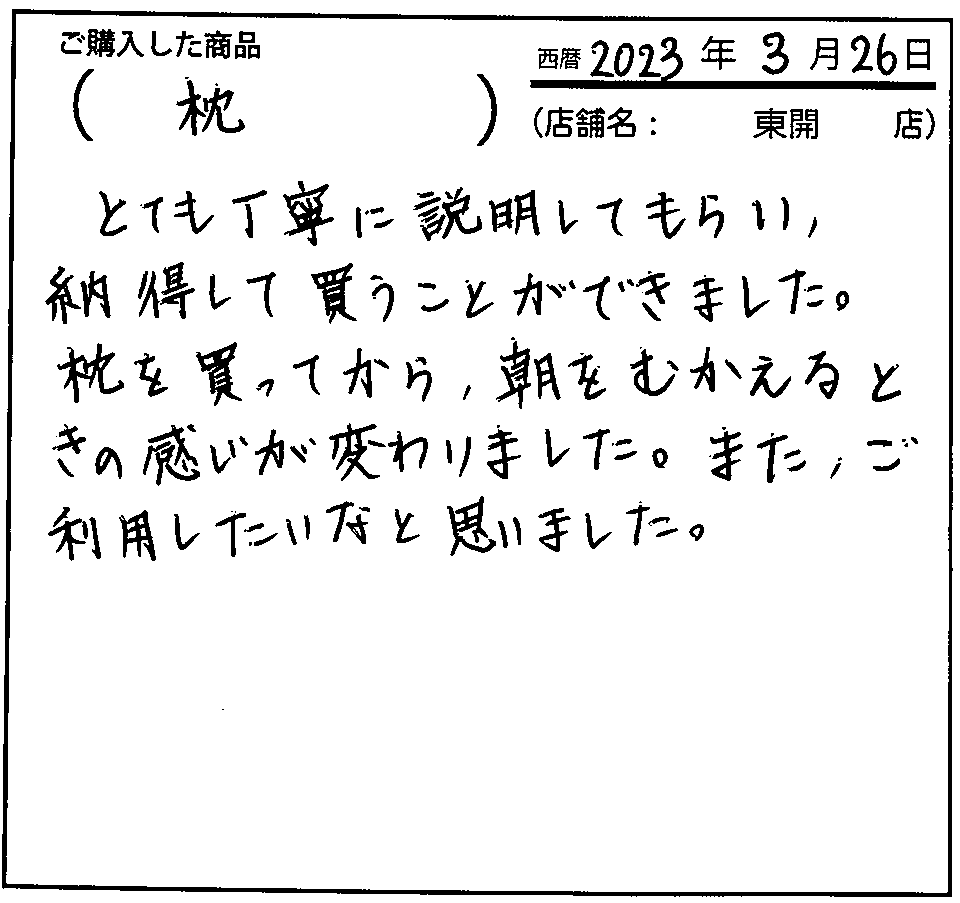 ご購入した商品
西暦 2023 年 3 月 26 日
( 枕 )
(店舗名: 東開 店)
とても丁寧に説明してもらい,
納得して買うことができました。
枕を買ってから,朝をむかえると
きの感じが変わりました。また,ご
利用したいなと思いました。